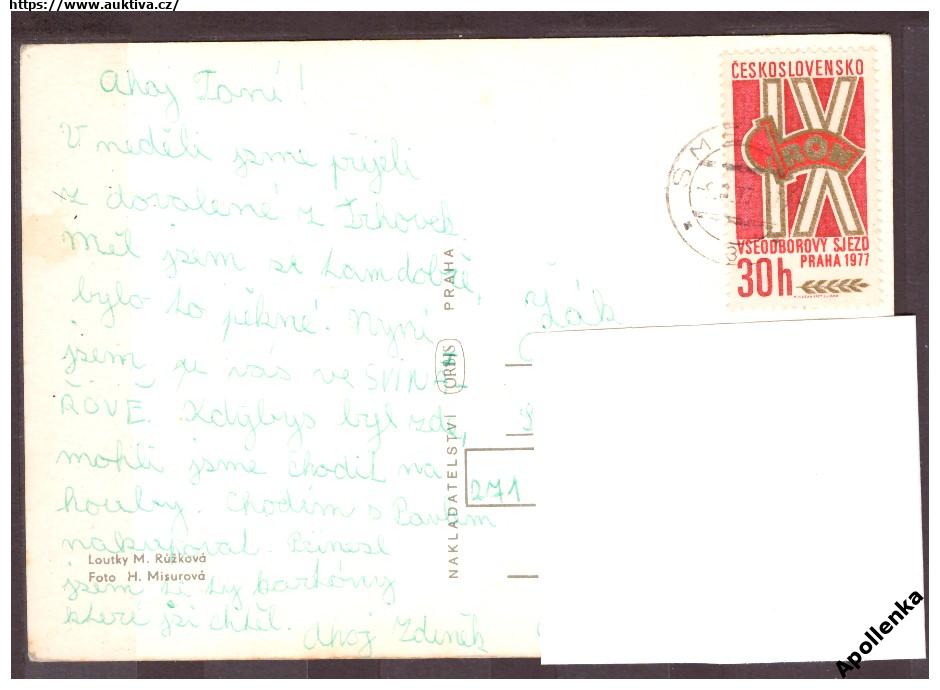 https://www.auktiva.cz/
Ahoj Toní!
V neděli jsme přijeli
z dovolené z Trhovek
Měl jsem se tam dobře,
bylo to pěkné. Nyní
jsem u vás ve SVINA-
ŘOVĚ. Kdybys byl zde,
mohli jsme chodit na
houby. Chodím s Pavlem
nakupovat. Přinesl
jsem ti ty kartóny
které jsi chtěl.
Ahoj Zdeněk
Loutky M. Růžková
Foto H. Misurová
NAKLADATELSTVÍ ORBIS PRAHA
ČESKOSLOVENSKO
IX
ROH
VŠEODBOROVÝ SJEZD
PRAHA 1977
30h
SM
Žák
271
Apollenka